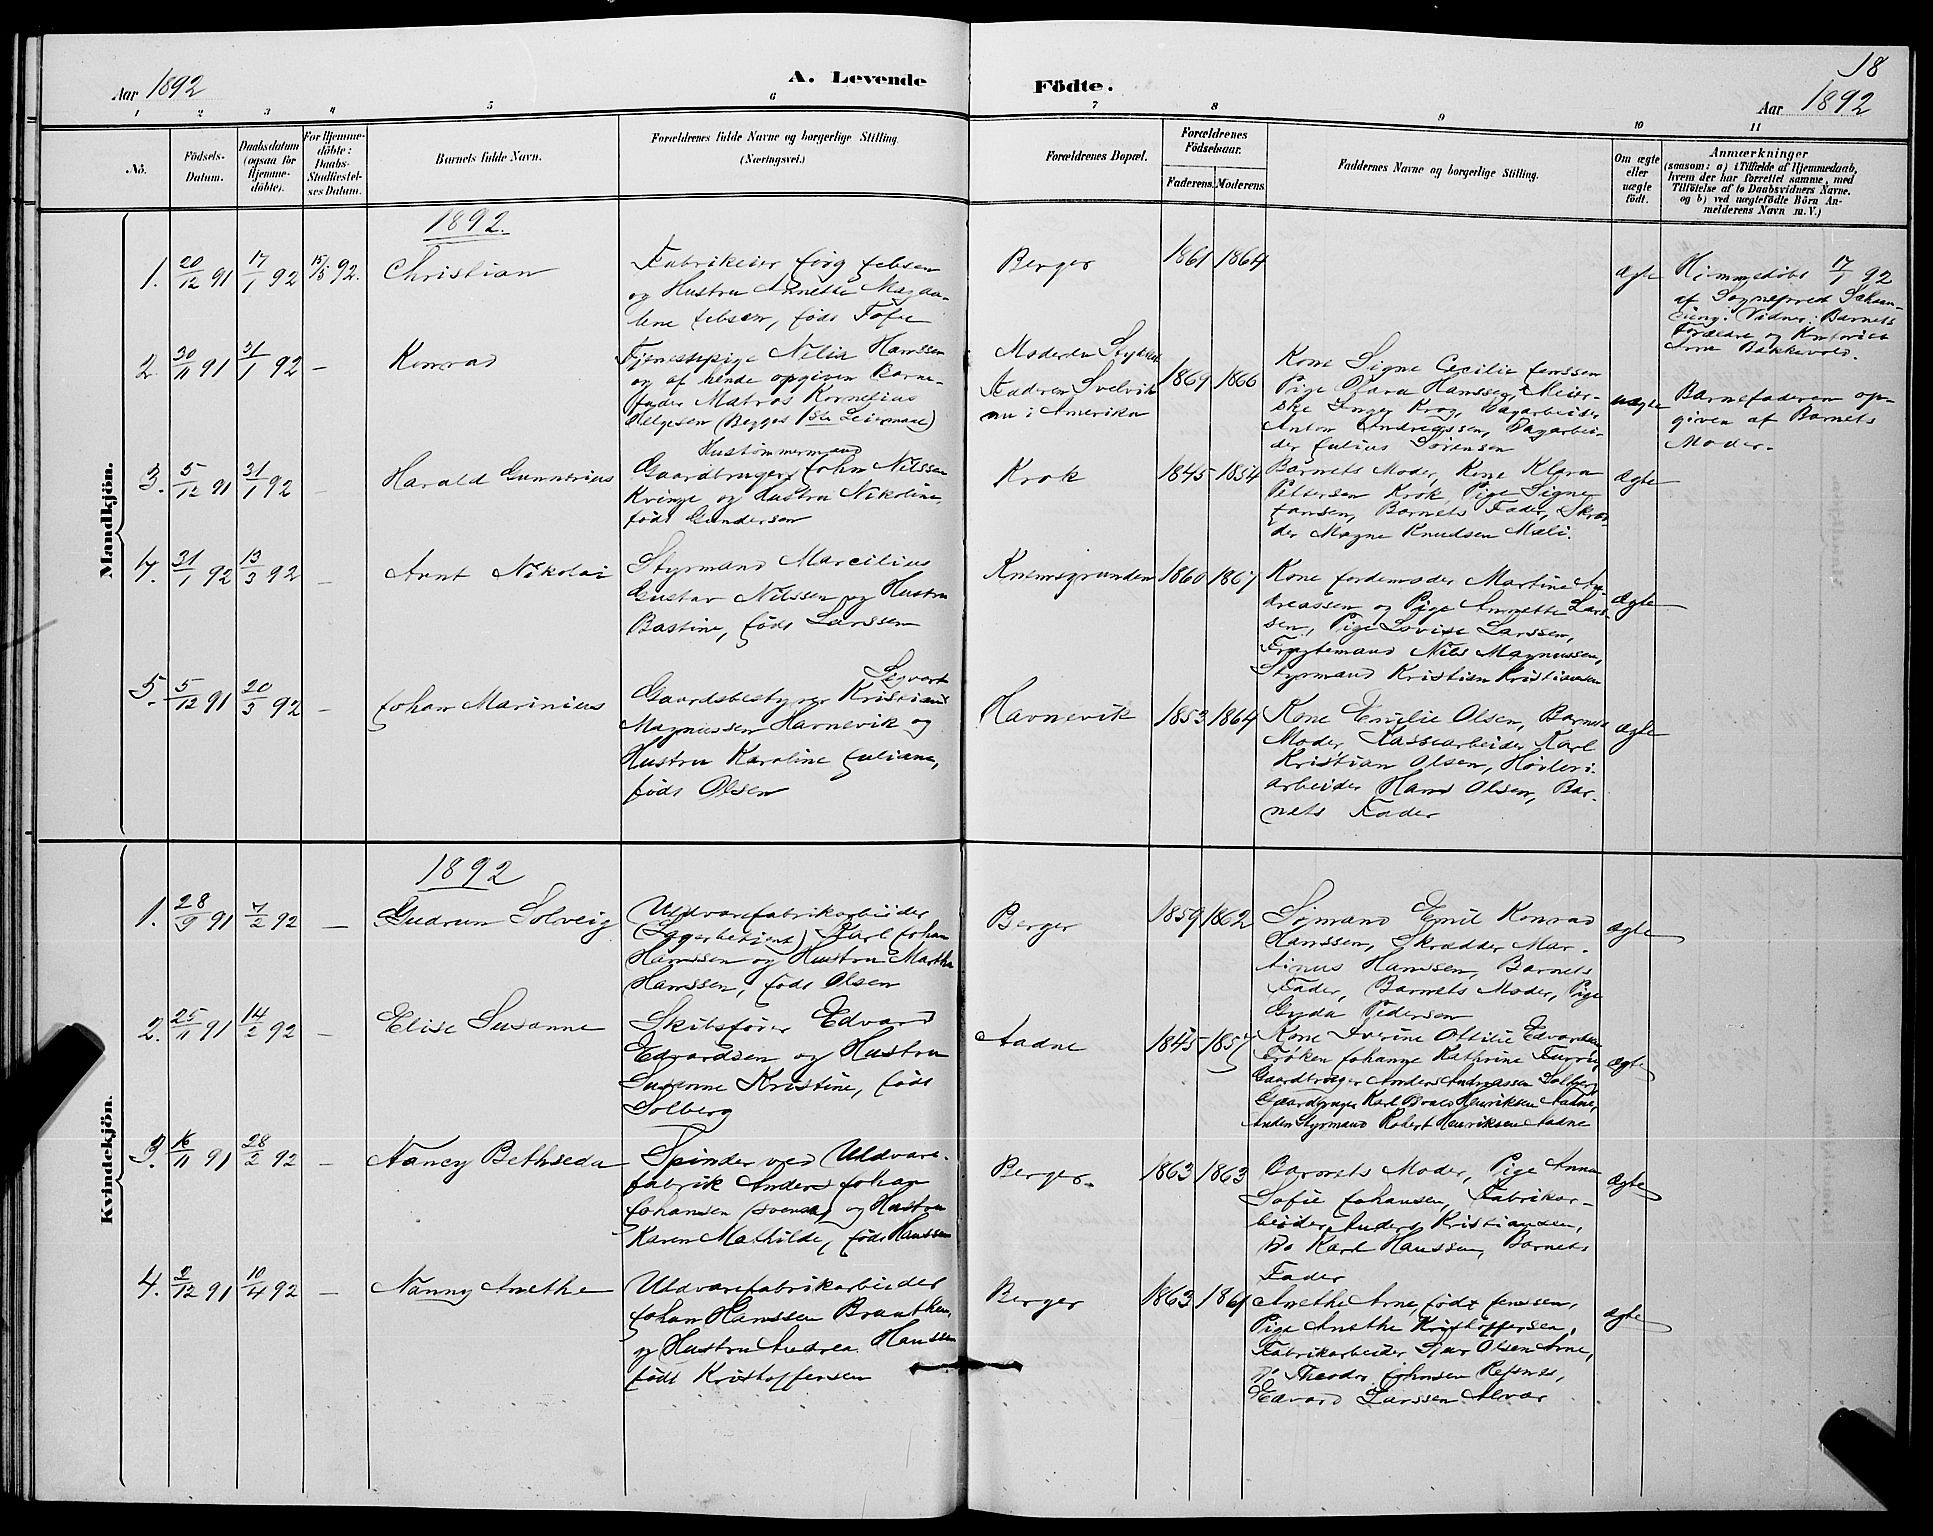 18
Aar 1892
A. Levende Födte.
Aar 1892
1 2 3 4 5 6 7 8 9 10 11
No.
Födsels-
Datum.
Daabsdatum
(ogsaa for
Hjemme-
döbte).
For Hjemme-
döbte:
Daabs-
Stadfæstel-
ses Datum.
Barnets fulde Navn.
Forældrenes fulde Navne og borgerlige Stilling.
(Næringsvei.)
Forældrenes Bopæl.
Forældrenes
Födselsaar.
Faderens. Moderens.
Faddernes Navne og borgerlige Stilling.
Om ægte
eller
uægte
födt.
Anmærkninger
(saasom: a) i Tilfælde af Hjemmedaab,
hvem der har forrettet samme, med
Tilföielse af to Daabsvidners Navne.
og b) ved uægtefödte Börn An-
melderens Navn m. V.)
Mandkjön.
1892.
1. 20/12 91 17/1 92 15/5 92. Christian
Fabrikeier Jörg Jebsen
og Hustru Annette Magda-
lene Jebsen, födt Tofte
Berger
1861 1864
ægte
Hjemmedöbt 17/1 92
af Sogneprest
Vidner: Barnets
Forældre og Kontorist
Arne Bakkevold.
2 30/11 91 31/1 92 – Konrad
Tjenestepige Nilia Hanssen
og af hende opgiven Barne-
fader Matros Kornelius
Helgesen (Begges 1ste Leiermaal)
Moderen
Faderen Svelvik
nu i Amerika
1869 1866
Kone Signe Cecilie Jenssen
Pige Klara Hanssen, Meier-
ske Inger Krog, Dagarbeider
Anton Andreassen, Dagarbei-
der Julius Sörensen
uægte
Barnefaderen op-
given af Barnets
Moder.
3. 5/12 91 31/1 92 – Harald Gunnerius
Hustömmermand
Gaardbruger John Nilssen
Kvinge og Hustru Nikoline,
födt Gundersen
Krok
1845 1854
Barnets Moder, Kone Klara
Pettersen Krok, Pige Signe
Jansen, Barnets Fader, Skræd-
der Magne Knudsen Mæli.
ægte
4. 31/1 92 13/3 92 – Arnt Nikolai
Styrmand Marcilius
Gustav Nilssen og Hustru
Bastine, födt Larssen
Knemsgrunden
1860 1867
Kone Jordemoder Martine An-
dreassen og Pige Annette Lars-
sen, Pige Lovise Larssen,
Fragtemand Nils Magnussen,
Styrmand Kristian Kristiansen
ægte
5. 5/12 91 20/3 92 – Johan Marinius
Sigvart
Gaardsbestyrer Kristian
Magnussen Havnevik og
Hustru Karoline Juliane,
födt Olsen
Havnevik
1853 1864
Kone Emilie Olsen, Barnets
Moder, Kassearbeider Karl
Kristian Olsen, Hövleri-
arbeider Hans Olsen, Bar-
nets Fader
ægte
Kvindekjön.
1892
1. 28/9 91 7/2 92 – Gudrun Solveig
Uldvarefabrikarbeider
(Lagerbetjent) Karl Johan
Hanssen og Hustru Martha
Hanssen, födt Olsen
Berger
1859 1862
Sömand Emil Konrad
Hanssen, Skrædder Mar-
tinus Hanssen, Barnets
Fader, Barnets Moder, Pige
Gyda Pedersen
ægte
2. 25/11 91 14/2 92 – Elise Susanne
Skibsförer Edvard
Edvardsen og Hustru
Susanne Kristine, födt
Solberg
Aadne
1845 1857
Kone Iverine Ottilie Edvardsen
Fröken Johanne Kathrine
Gaardbruger Anders Andreassen Solberg
Gaardbruger Karl Henriksen Aadne,
Anden Styrmand Robert Henriksen Aadne
ægte
3. 16/11 91 28/2 92 – Nancy Bethseda
Spinder ved Uldvare-
fabrik Anders Johan
Johansen (svensk) og Hustru
Karen Mathilde, födt Hanssen
Berger.
1863 1863
Barnets Moder, Pige Anna
Sofie Johansen, Fabrikar-
beider Anders Kristiansen,
Do Karl Hanssen, Barnets
Fader
ægte
4. 2/12 91 10/4 92 – Nanny Anethe
Uldvarefabrikarbeider
Johan Hanssen Braathen
og Hustru Andrea Hanssen
födt Kristoffersen
Berger
1863 1861
Anethe Arne, födt Jenssen,
Pige Anethe Kristoffersen,
Fabrikarbeider Olsen Arne,
Do Theodor Johnsen Refsnes,
Edvard Larssen Alvar
ægte